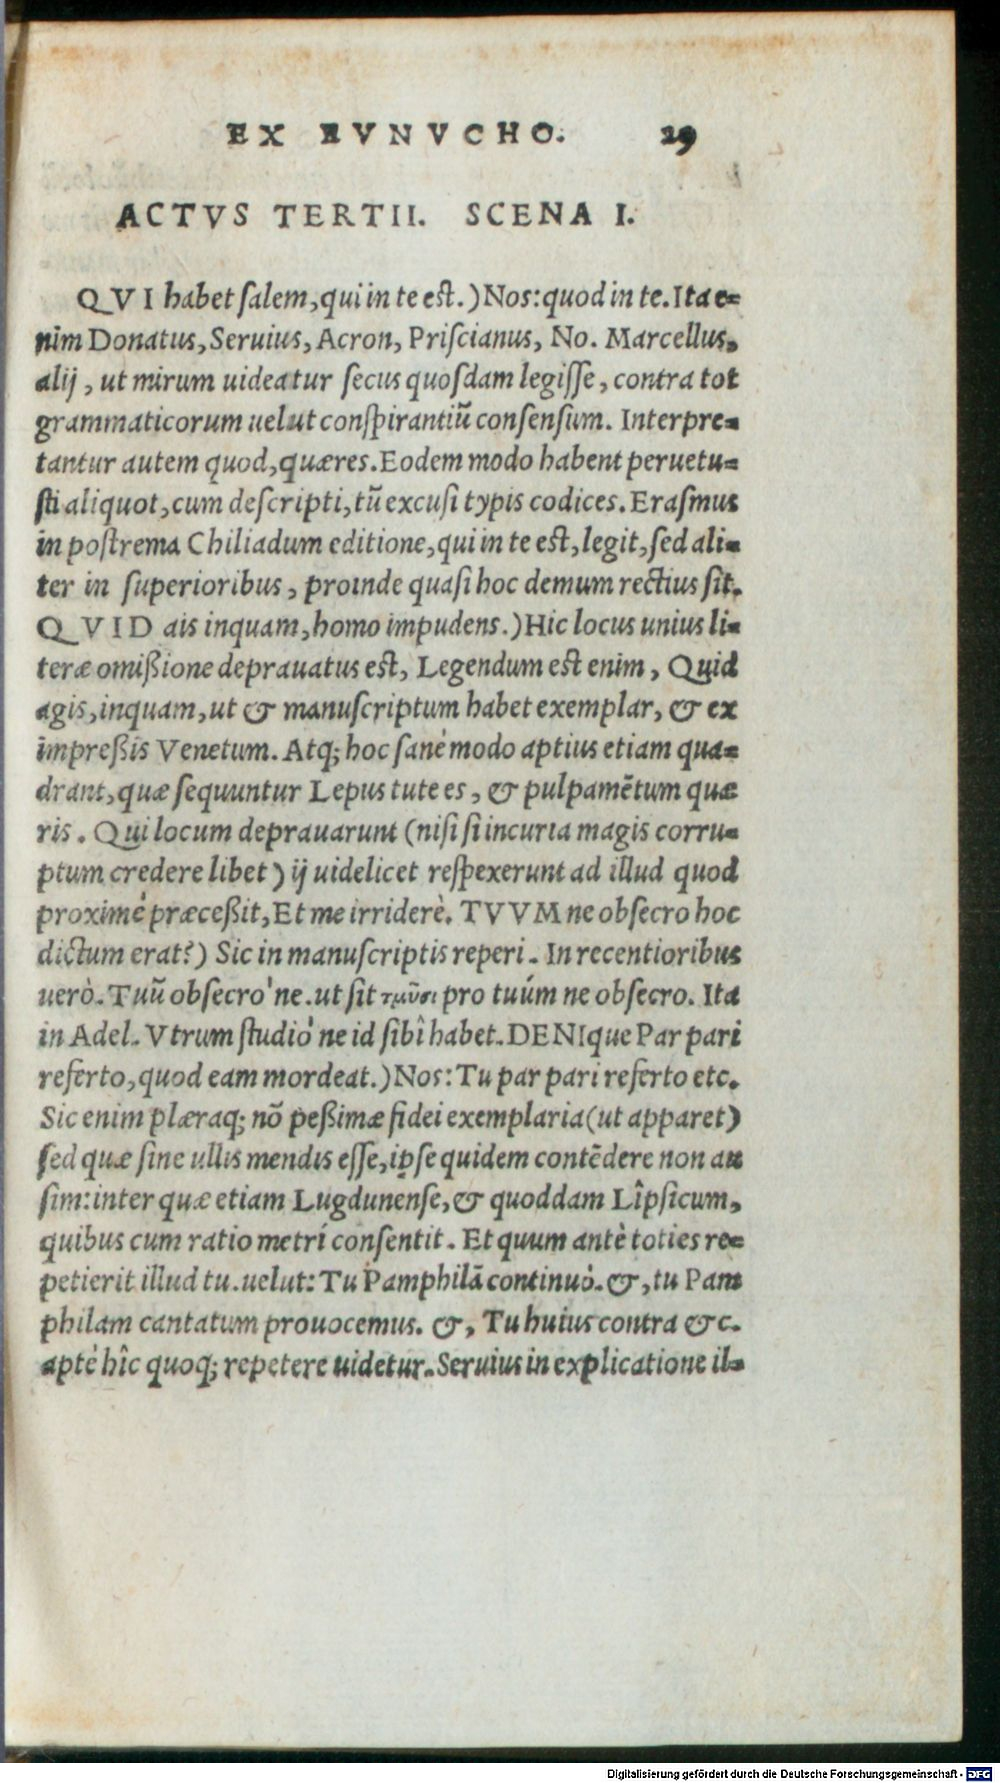 EX EVNVCHO. 29
ACTVS TERTII. SCENA I.
QVI habet ſalem, qui in te eſt.) Nos: quod in te. Ita e=
nim Donatus, Seruius, Acron, Priſcianus, No. Marcellus,
alij, ut mirum uideatur ſecus quoſdam legiſſe, contra tot
grammaticorum uelut conſpirantiũ conſenſum. Interpre=
tantur autem quod, quæres. Eodem modo habent peruetu=
ſti aliquot, cum deſcripti, tũ excuſi typis codices. Eraſmus
in poſtrema Chiliadum editione, qui in te eſt, legit, ſed ali=
ter in ſuperioribus, proinde quaſi hoc demum rectius ſit.
QVID ais inquam, homo impudens.) Hic locus unius li=
teræ omißione deprauatus eſt, Legendum eſt enim, Quid
agis, inquam, ut & manuſcriptum habet exemplar, & ex
impreßis Venetum. Atq; hoc ſanè modo aptius etiam qua=
drant, quæ ſequuntur Lepus tute es, & pulpamẽtum quæ
ris. Qui locum deprauarunt (niſi ſi incuria magis corru=
ptum credere libet) ij uidelicet reſpexerunt ad illud quod
proximè præceßit, Et me irriderè. TVVM ne obſecro hoc
dictum erat?) Sic in manuſcriptis reperi. In recentioribus
uerò. Tuũ obſecro'ne. ut ſit τμῆσι pro tuúm ne obſecro. Ita
in Adel. Vtrum ſtudio'ne id ſibî habet. DENIque Par pari
referto, quod eam mordeat.) Nos: Tu par pari referto etc.
Sic enim plæraq; nõ peßimæ fidei exemplaria (ut apparet)
ſed quæ ſine ullis mendis eſſe, ipſe quidem contẽdere non au
ſim: inter quæ etiam Lugdunenſe, & quoddam Lîpſicum,
quibus cum ratio metri conſentit. Et quum antè toties re=
petierit illud tu. uelut: Tu Pamphilã continuò. &, tu Pam
philam cantatum prouocemus. &, Tu huius contra &c.
aptè hîc quoq; repetere uidetur. Seruius in explicatione il=
Digitalisierung gefördert durch die Deutsche Forschungsgemeinschaft - DFG